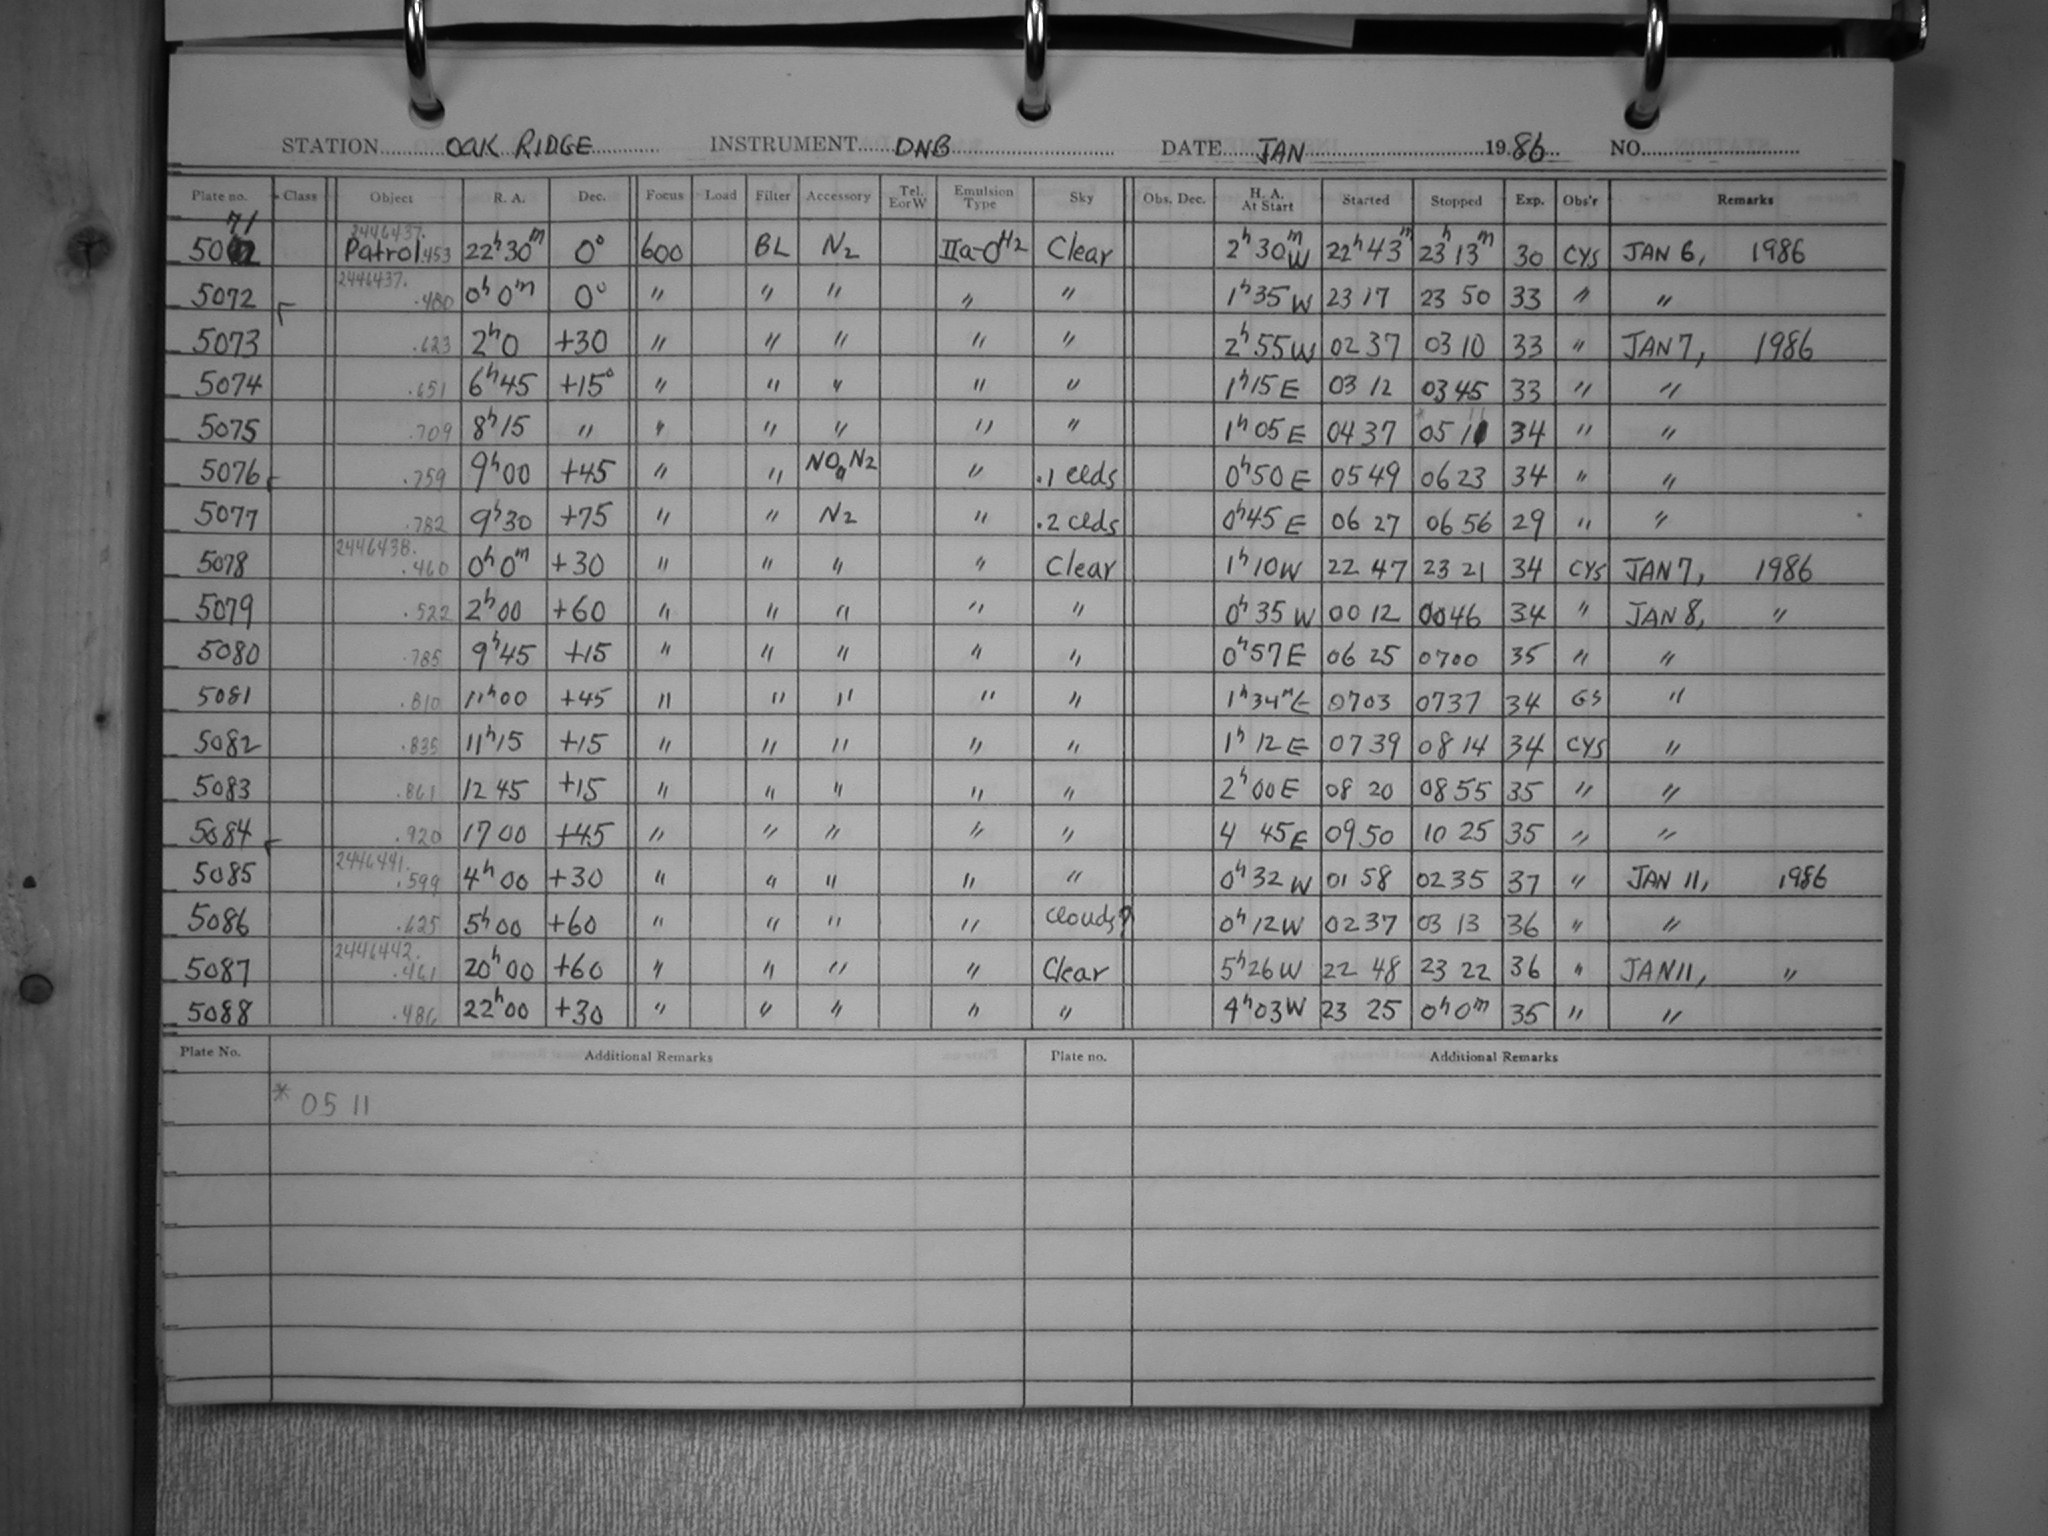 STATION OAK RIDGE INSTRUMENT DNB DATE JAN 1986 NO.
Plate no. Class Object R. A. Dec. Focus Load Filter Accessory Tel. EorW Emulsion Type Sky Obs. Dec. H. A. At Start Started Stopped Exp. Obs'r Remarks
71
2446437.
50 Patrol .453 22h 30m 0° 600 BL N2 IIa-O H2 Clear 2h 30m W 22h 43m 23h 13m 30 CYS JAN 6, 1986
2446437.
5072 .480 0h 0m 0° " " " " " 1h 35 W 23 17 23 50 33 " "
5073 .623 2h 0 +30 " " " " " 2h 55 W 02 37 03 10 33 " JAN 7, 1986
5074 .651 6h 45 +15° " " " " " 1h 15 E 03 12 03 45 33 " "
5075 .709 8h 15 " " " " " " 1h 05 E 04 37 * 05 11 34 " "
5076 .759 9h 00 +45 " " NO N2 " .1 clds 0h 50 E 05 49 06 23 34 " "
5077 .782 9h 30 +75 " " N2 " .2 clds 0h 45 E 06 27 06 56 29 " "
2446438.
5078 .460 0h 0m +30 " " " " Clear 1h 10 W 22 47 23 21 34 CYS JAN 7, 1986
5079 .522 2h 00 +60 " " " " " 0h 35 W 00 12 00 46 34 " JAN 8, "
5080 .785 9h 45 +15 " " " " " 0h 57 E 06 25 07 00 35 " "
5081 .810 11h 00 +45 " " " " " 1h 34m E 07 03 07 37 34 GS "
5082 .835 11h 15 +15 " " " " " 1h 12 E 07 39 08 14 34 CYS "
5083 .861 12 45 +15 " " " " " 2h 00 E 08 20 08 55 35 " "
5084 .920 17 00 +45 " " " " " 4 45 E 09 50 10 25 35 " "
2446441.
5085 .599 4h 00 +30 " " " " " 0h 32 W 01 58 02 35 37 " JAN 11, 1986
5086 .625 5h 00 +60 " " " " clouds? 0h 12 W 02 37 03 13 36 " "
2446442.
5087 .461 20h 00 +60 " " " " Clear 5h 26 W 22 48 23 22 36 " JAN 11, "
5088 .486 22h 00 +30 " " " " " 4h 03 W 23 25 0h 0m 35 " "
Plate No. Additional Remarks Plate no. Additional Remarks
* 05 11